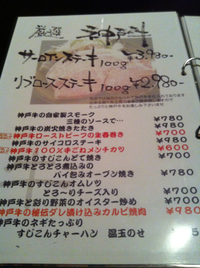 厳選 神戸牛
サーロインステーキ
100g ¥3,980-
リブロースステーキ
100g ¥2,980-
神戸牛の自家製スモーク ¥780
三種のソースで…
神戸牛の炭火焼きたたき ¥980
神戸牛ローストビーフの生春巻き ¥700
神戸牛のサイコロステーキ ¥980
神戸牛100%手ごねメンチカツ ¥600
神戸牛のすじこんどて焼き ¥700
神戸牛とろとろ煮込みの
パイ包みオーブン焼き ¥780
神戸牛のすじこんオムレツ
とろ～りチーズ入り ¥700
神戸牛と彩り野菜のオイスター炒め ¥700
神戸牛の秘伝ダレ漬け込みカルビ焼肉 ¥980
神戸牛のネギたっぷり
すじこんチャーハン 温玉のせ